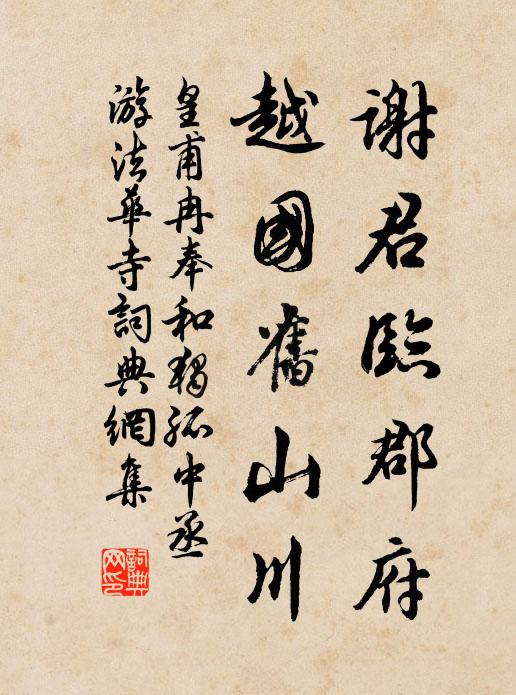 謝君臨郡府
越國舊山川
皇甫冉奉和獨孤中丞
游法華寺詞典網集
詞典
网印